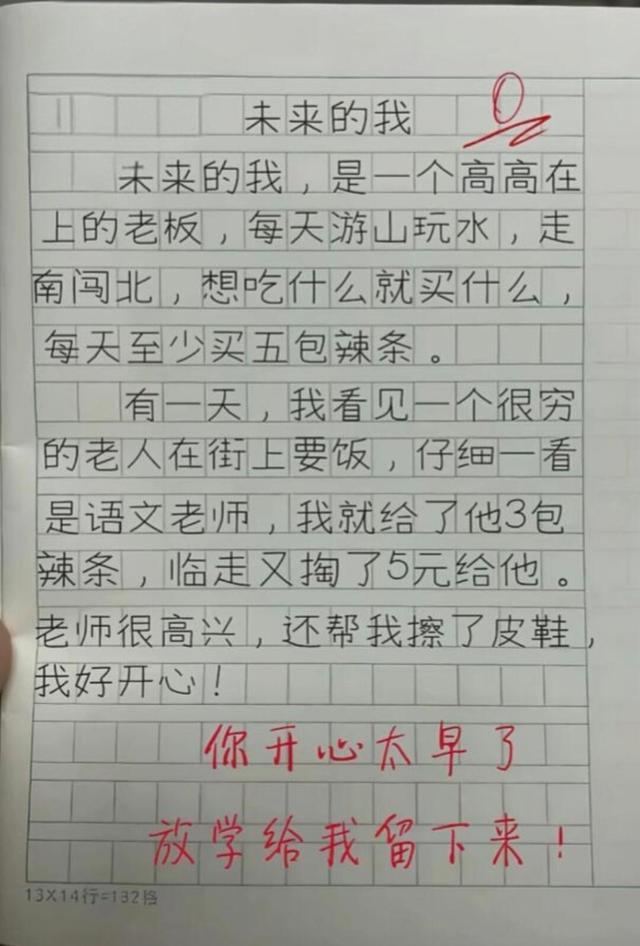 未来的我
0
未来的我，是一个高高在
上的老板，每天游山玩水，走
南闯北，想吃什么就买什么，
每天至少买五包辣条。
有一天，我看见一个很穷
的老人在街上要饭，仔细一看
是语文老师，我就给了他3包
辣条，临走又掏了5元给他。
老师很高兴，还帮我擦了皮鞋，
我好开心！
你开心太早了
放学给我留下来！
13X14行=182格